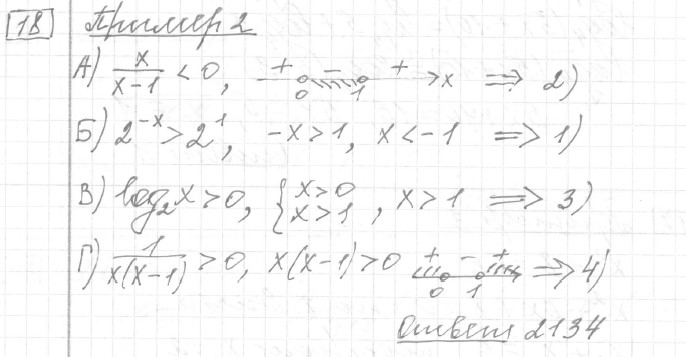 18 Пример 2
А) x/(x-1) < 0, + - + 0 1 >x => 2)
Б) 2^-x > 2^1, -x > 1, x < -1 => 1)
В) log₂x > 0, { x>0 x>1 , x > 1 => 3)
Г) 1/(x(x-1)) > 0, x(x-1) > 0 + - + 0 1 => 4)
Ответ 2134